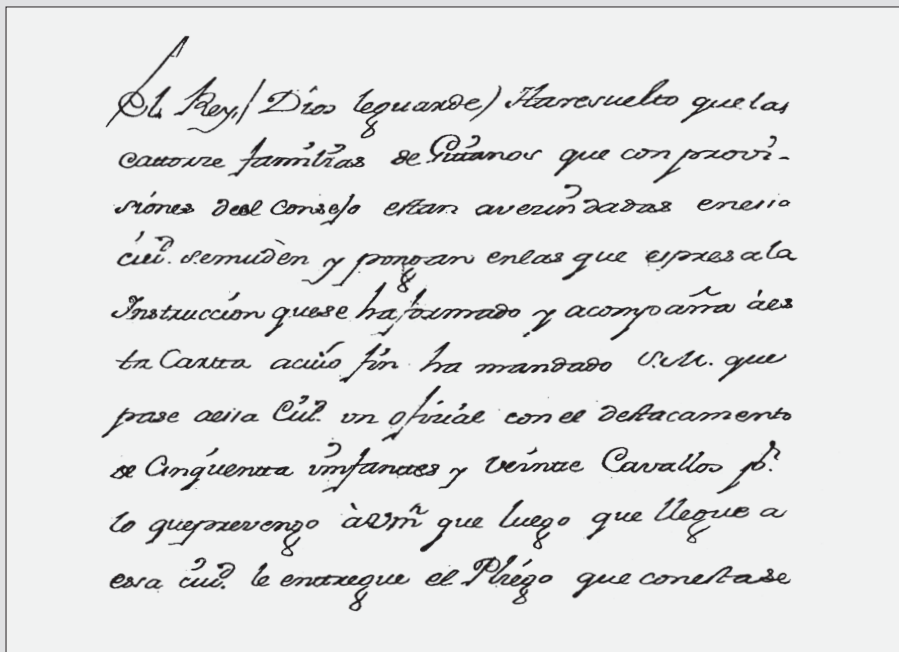 El Rey (Dios leguarde) Harresuelto que las
catorze familias de Gitanos que con provi-
siones del Consejo estan avezindadas enessa
ciud. semuden y pongan enlas que espresa la
Instruccion quese ha formado y acompaña áes
ta Carta acuio fin ha mandado S.M. que
pase aessa Ciud. un ofizial con el destacamento
de Cinquenta imfantes y veinte Cavallos pr.
lo queprevengo à Vm que luego que llegue a
essa ciud. le entregue el Pliego que conestase